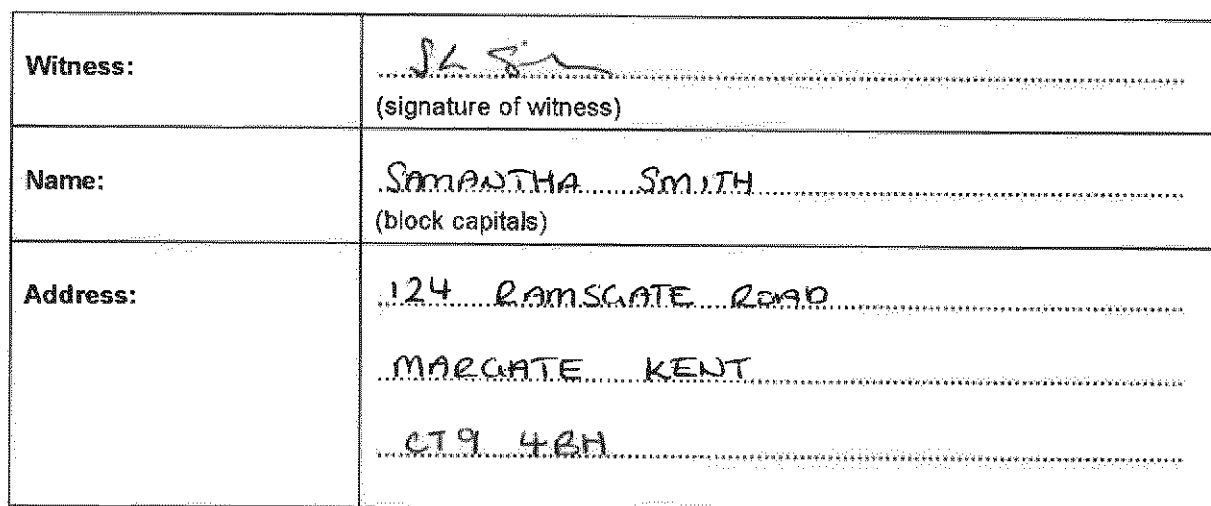 Witness:
(signature of witness)
Name: SAMANTHA SMITH
(block capitals)
Address: 124 RAMSGATE ROAD
MARGATE KENT
CT9 4BH